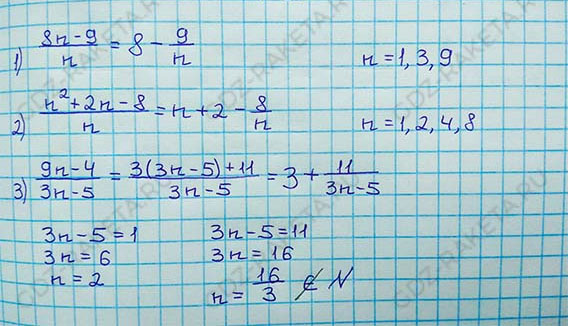 1) (8n-9)/n = 8 - 9/n   n = 1, 3, 9
2) (n²+2n-8)/n = n + 2 - 8/n   n = 1, 2, 4, 8
3) (9n-4)/(3n-5) = (3(3n-5)+11)/(3n-5) = 3 + 11/(3n-5)
3n-5=1   3n-5=11
3n=6   3n=16
n=2   n=16/3 ∉ N
GDZ-RAKETA.RU